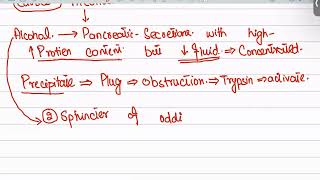 Alcohol. → Pancreatic Secretions with high
↑ Protien content but ↓ fluid ⇒ Concentrated.
Precipitate ⇒ Plug ⇒ obstruction ⇒ Trypsin ⇒ activate.
② Sphincter of oddi